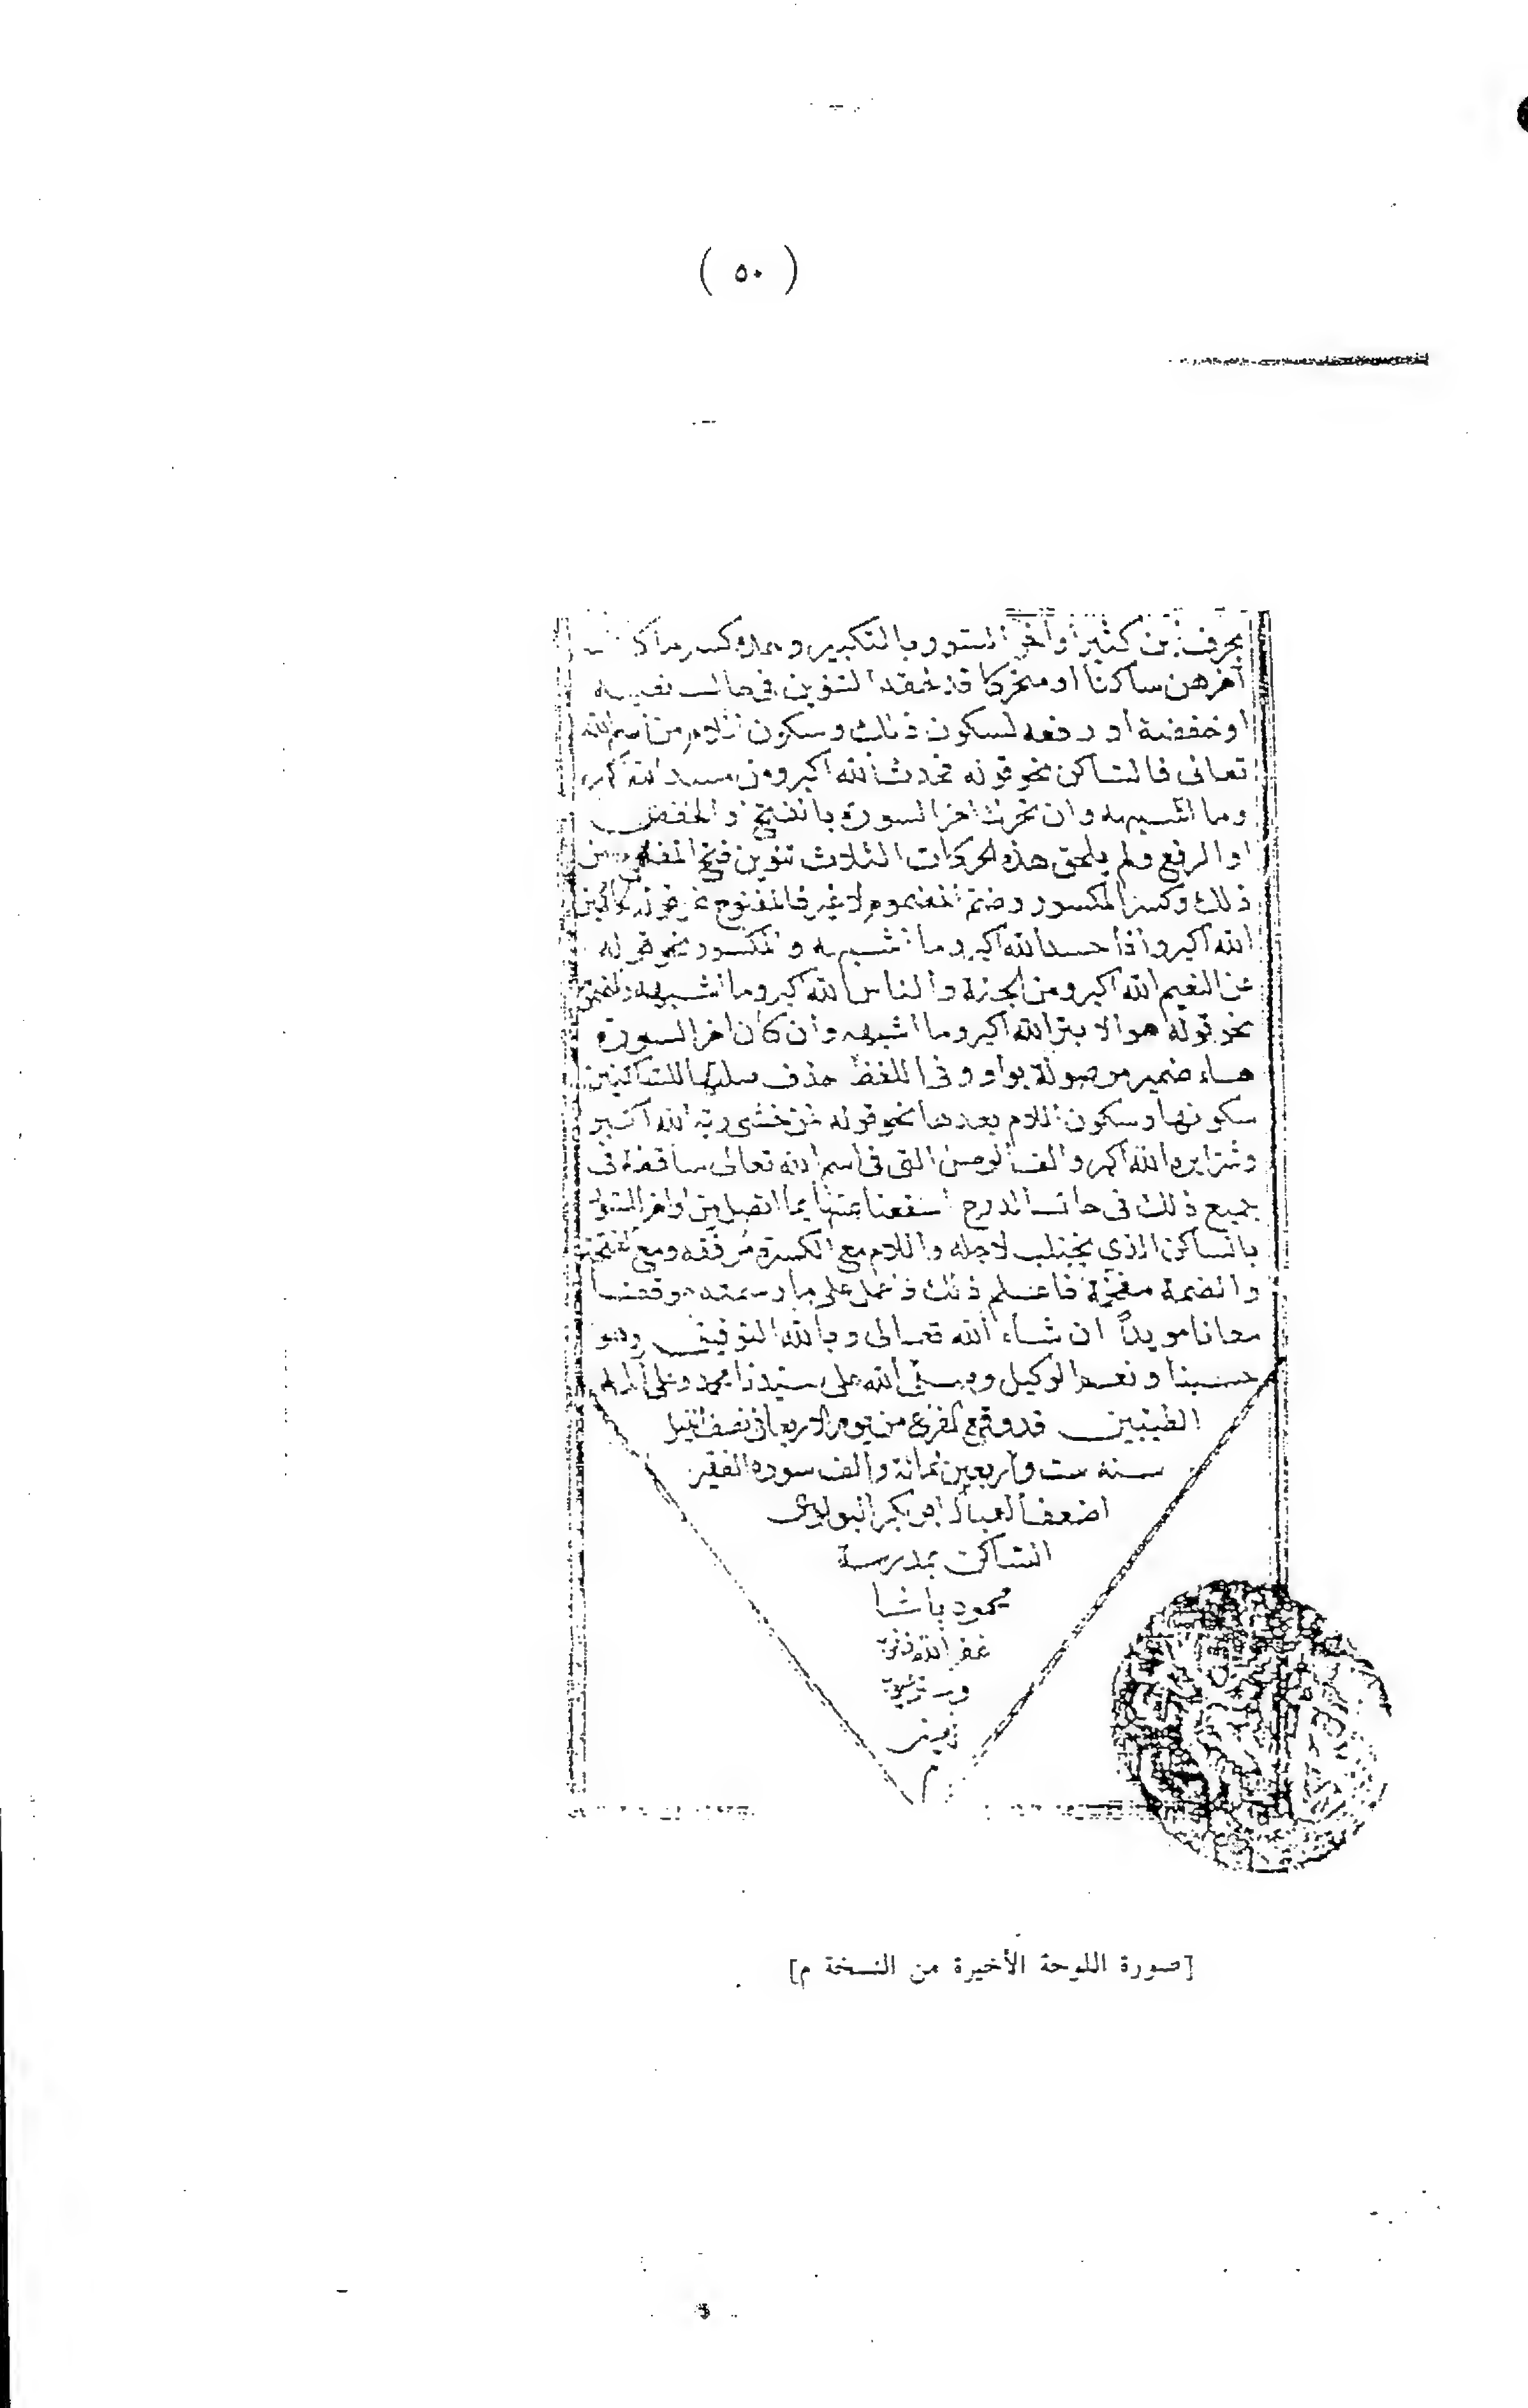 ( ٥٠ )
بحرف ابن كثير أواخر السور بالتكبير و كسر ما كان
آخرهن ساكنا او متحركا قد لحقه التنوين فى حال نصبه
او خفضه او رفعه لسكون ذلك وسكون اللام من اسم الله
تعالى فالساكن نحو قوله فحدث الله اكبر ومن مسد الله اكبر
وما اشبهه وان تحرك اخر السورة بالفتح او الخفض
او الرفع ولم يلحق هذه الحركات الثلاث تنوين فتح المفتوح من
ذلك وكسر المكسور وضم المضموم لا غير فالمفتوح نحو قوله الحاكمين
الله اكبر واذا حسد الله اكبر وما اشبهه والمكسور نحو قوله
عن النعيم الله اكبر ومن الجنة والناس الله اكبر وما اشبهه والمضموم
نحو قوله هو الابتر الله اكبر وما اشبهه وان كان اخر السورة
هاء ضمير موصولة بواو فى اللفظ حذف صلتها للساكنين
سكونها وسكون اللام بعدها نحو قوله لمن خشى ربه الله اكبر
وشرا يره الله اكبر والف الوصل التى فى اسم الله تعالى ساقطة فى
جميع ذلك فى حال الدرج استغنا عنها بما اتصل من اواخر السور
بالساكن الذى يجتلب لاجله واللام مع الكسرة مرققه ومع الفتحة
والضمة مفخمة فاعلم ذلك واعمل على ما رسمته موفقا
معانا مويداً ان شاء الله تعالى وبالله التوفيق وهو
حسبنا ونعم الوكيل وصلى الله على سيدنا محمد وعلى اله
الطيبين قد وقع الفراغ من يوم الاربعا فى نصف الليل
سنه ست واربعين ثمانة والف سوده الفقير
اضعف العباد ابو بكر البولوى
الساكن بمدرسة
محمود باشا
غفر الله ذنوبه
وستر عيوبه
امين
م
[صورة اللوحة الأخيرة من النسخة م]